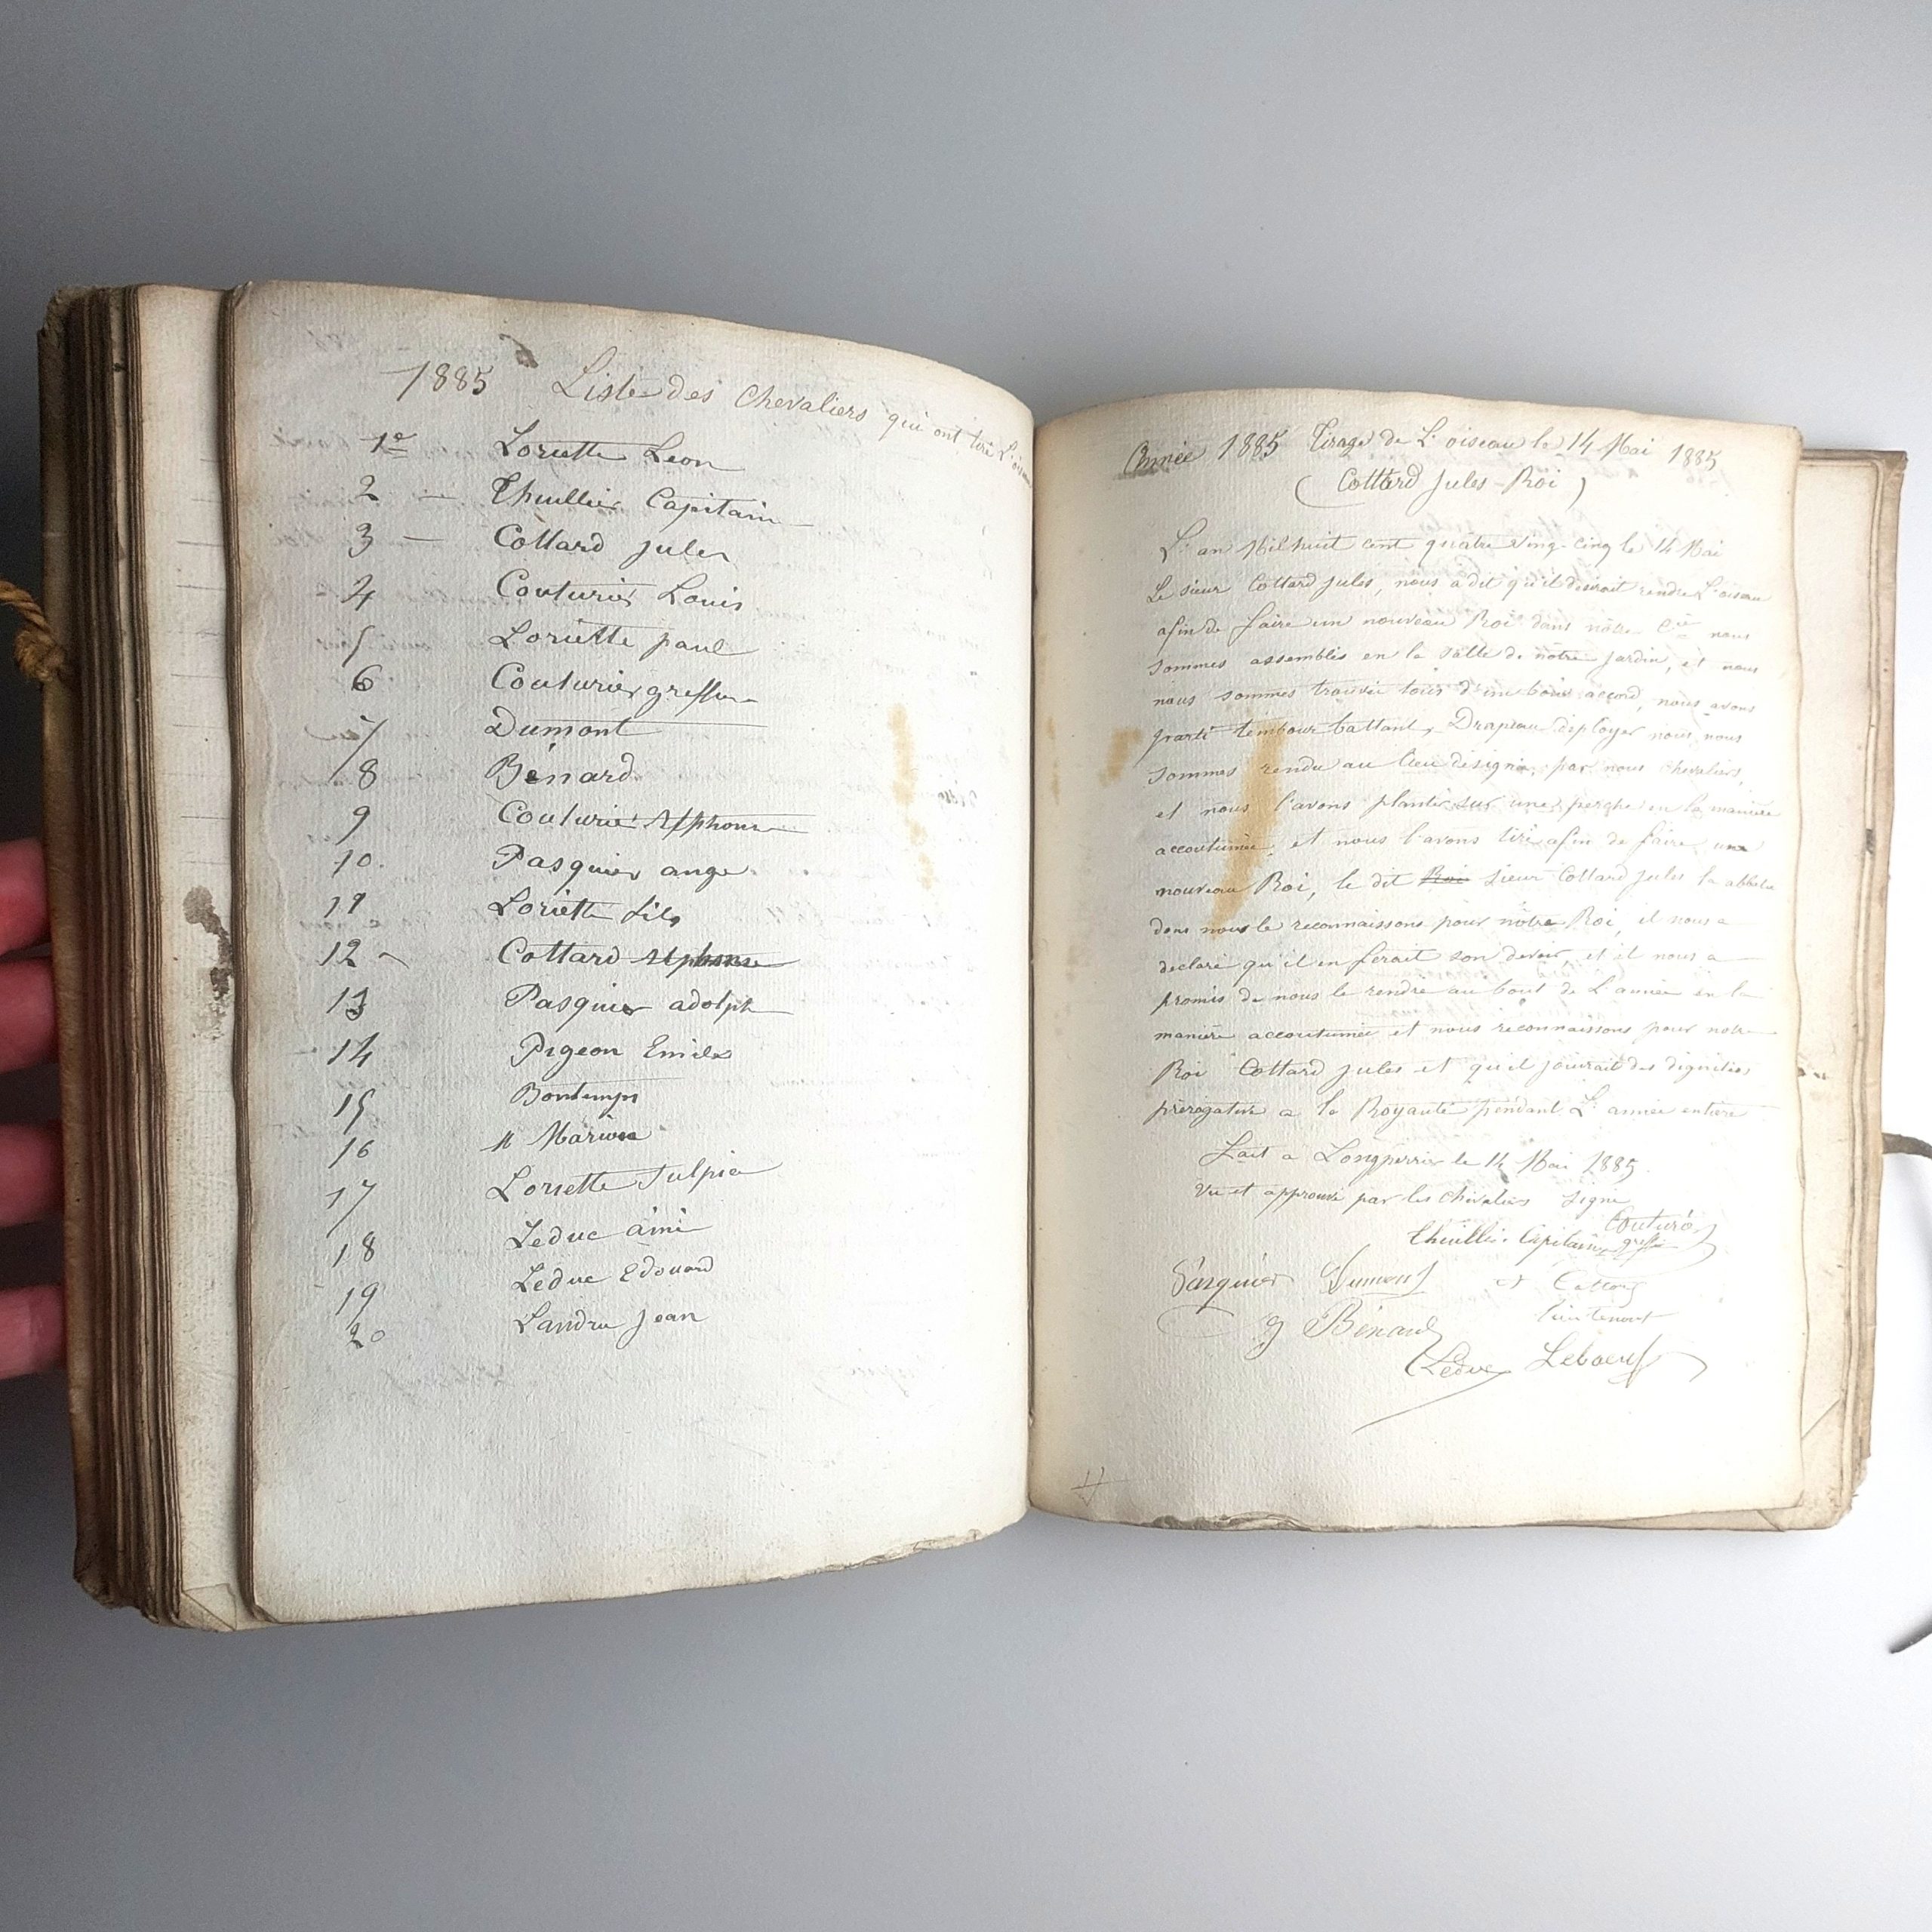 1885 Liste des Chevaliers qui ont tiré L'oiseau
1e Loriette Leon
2 — Thuillier Capitain
3 — Cottard jules
4 Couturier Louis
5 Loriette paul
6 Couturier greffier
7 Dumont
8 Bénard
9 Couturier Alphonse
10. Pasquier ange
11 Loriette fils
12 - Cottard Alphonse
13 Pasquier adolph
14 Pigeon Emile
15 Bontemps
16 Marion
17 Loriette Sulpice
18 Leduc aimé
19 Leduc Edouard
20 Landru Jean
Année 1885 Tirage de L'oiseau le 14 Mai 1885
(Cottard Jules - Roi)
L'an Mil huit cent quatre Ving-cinq le 14 Mai
Le sieur Cottard jules, nous a dit qu'il desirait rendre L'oiseau
afin de faire un nouveau Roi dans nôtre Cie nous
sommes assemblés en la salle de nôtre jardin, et nous
nous sommes trouvée tous d'un bon accord, nous avons
parti tembour battant, Drapeau deployer nous nous
sommes rendu au lieu designé, par nous chevaliers,
et nous l'avons planter sur une perghe en la manière
accoutumée, et nous l'avons tiré afin de faire un
nouveau Roi, le dit Roi sieur Cottard jules la abbatu
dons nous le reconnaissons pour nôtre Roi, il nous a
declaré qu'il en ferait son devoir, et il nous a
promis de nous le rendre au bout de L'année en la
manière accoutumée et nous reconnaissons pour notre
Roi Cottard jules et qu'il jouirait des dignitées
prérogative a la Royauté pendant L'année entière
Fait a Longperrier le 14 Mai 1885.
Vu et approuvé par les chevaliers signé
Thuillier Capitain Couturier greffier
Pasquier Dumont et Cottard
lieutenant
g Bénard
Leduc Leboeuf